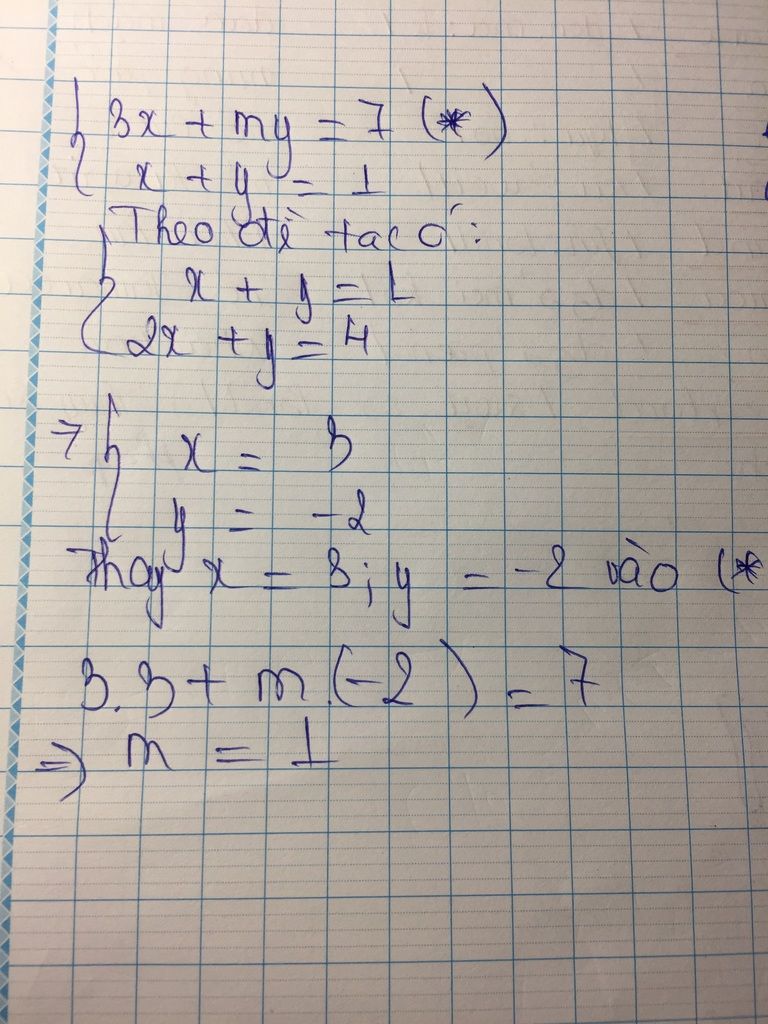 3x + my = 7 (*)
x + y = 1
Theo đề ta có:
x + y = 1
2x + y = 4
=> x = 3
y = -2
Thay x = 3; y = -2 vào (*
3.3 + m.(-2) = 7
=> m = 1